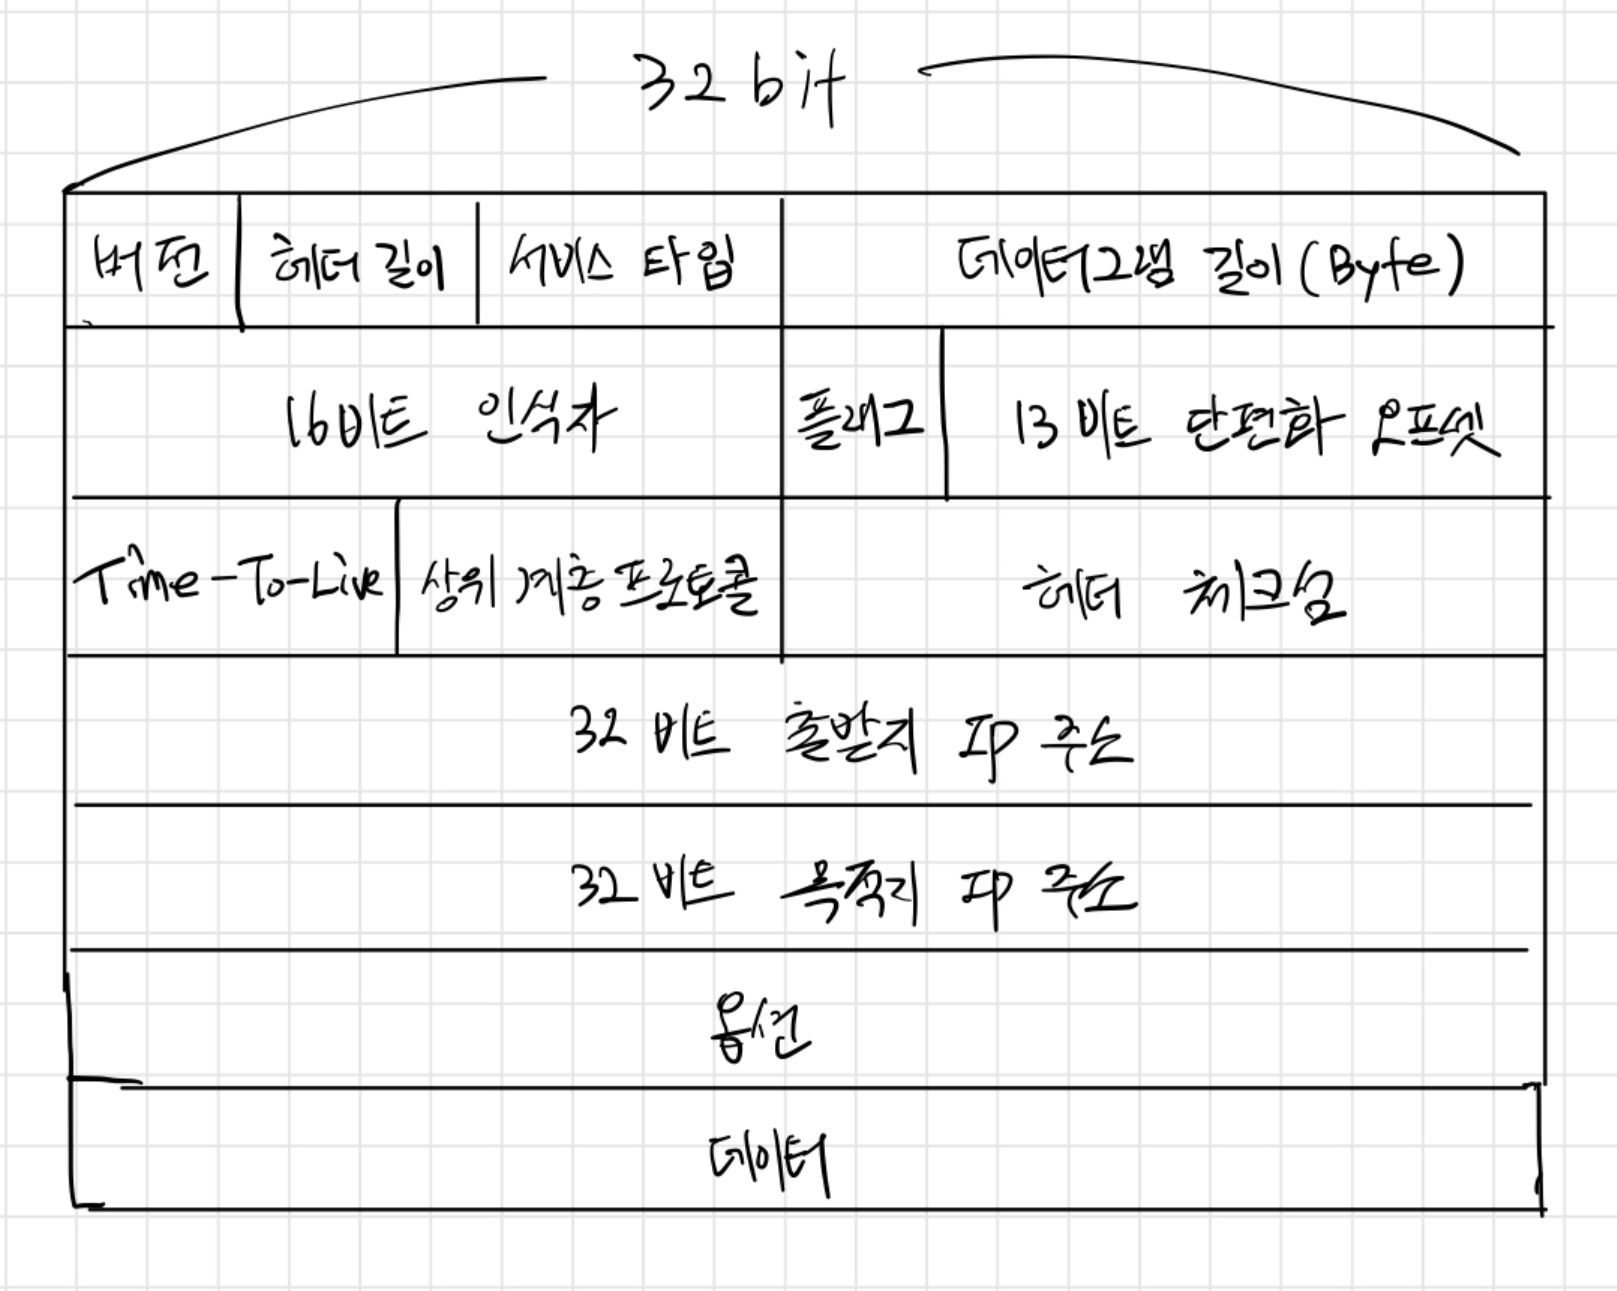 32 bit
버전 헤더 길이 서비스 타입 데이터그램 길이 (Byte)
16비트 인식자 플래그 13 비트 단편화 오프셋
Time-To-Live 상위 계층 프로토콜 헤더 체크섬
32 비트 출발지 IP 주소
32 비트 목적지 IP 주소
옵션
데이터